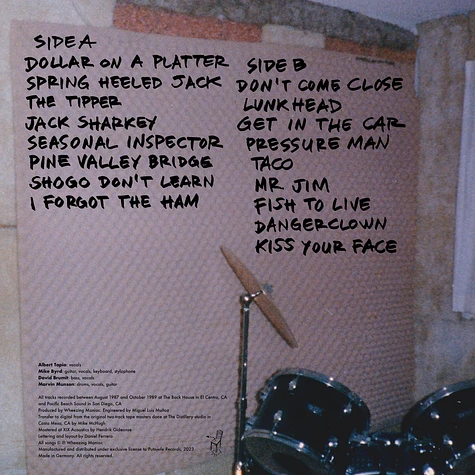 SIDE A
DOLLAR ON A PLATTER
SPRING HEELED JACK
THE TIPPER
JACK SHARKEY
SEASONAL INSPECTOR
PINE VALLEY BRIDGE
SHOGO DON'T LEARN
I FORGOT THE HAM
SIDE B
DON'T COME CLOSE
LUNKHEAD
GET IN THE CAR
PRESSURE MAN
TACO
MR. JIM
FISH TO LIVE
DANGERCLOWN
KISS YOUR FACE
Albert Tapia: vocals
Mike Byrd: guitar, vocals, keyboard, stylophone
David Brumit: bass, vocals
Marvin Munson: drums, vocals, guitar
All tracks recorded between August 1987 and October 1989 at The Rock House in El Centro, CA
and Pacific Beach Sound in San Diego, CA
Produced by Wheezing Maniac. Engineered by Miguel Luis Muñoz
Transfer to digital from the original two-track tape masters done at The Distillery studio in
Costa Mesa, CA by Mike McHugh
Mastered at XIX Acoustics by Hendrik
Lettering and layout by Daniel Ferreira
All songs © ℗ Wheezing Maniac
Manufactured and distributed under exclusive license to Records, 2023
Made in Germany. All rights reserved.